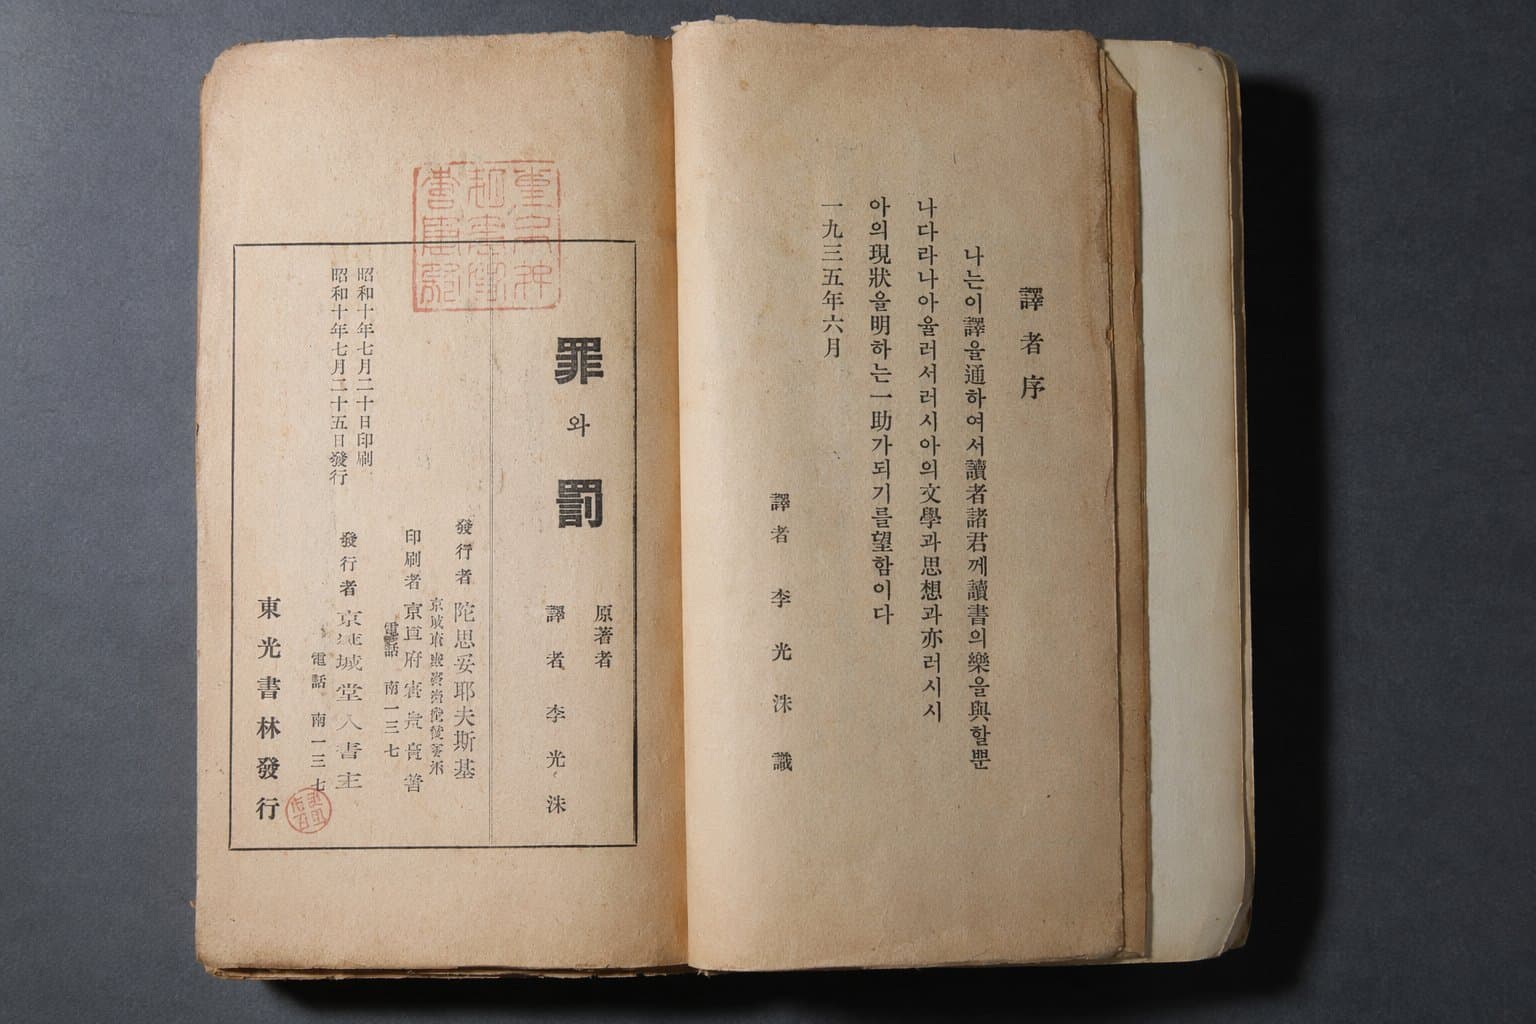 譯者序
나는이譯을通하여서讀者諸君께讀書의樂을與할뿐
나다라나아울러서러시아의文學과思想과亦러시시
아의現狀을明하는一助가되기를望함이다
一九三五年六月
譯者 李光洙 識
罪와罰
原著者
譯者 李光洙
發行者 陀思妥耶夫斯基
印刷者 京 府
電話 南一三七
昭和十年七月二十日印刷
昭和十年七月二十五日發行
發行者 京 城堂 書主
電話 南一三七
東光書林發行